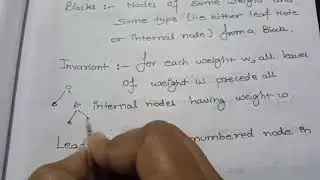 Blocks :- Nodes of same weight and
same type (i.e either leaf Node
or internal node) from a Block.
Invariant :- for each weight w, all leaves
of weight w precede all
internal nodes having weight w
Lead numbered node in